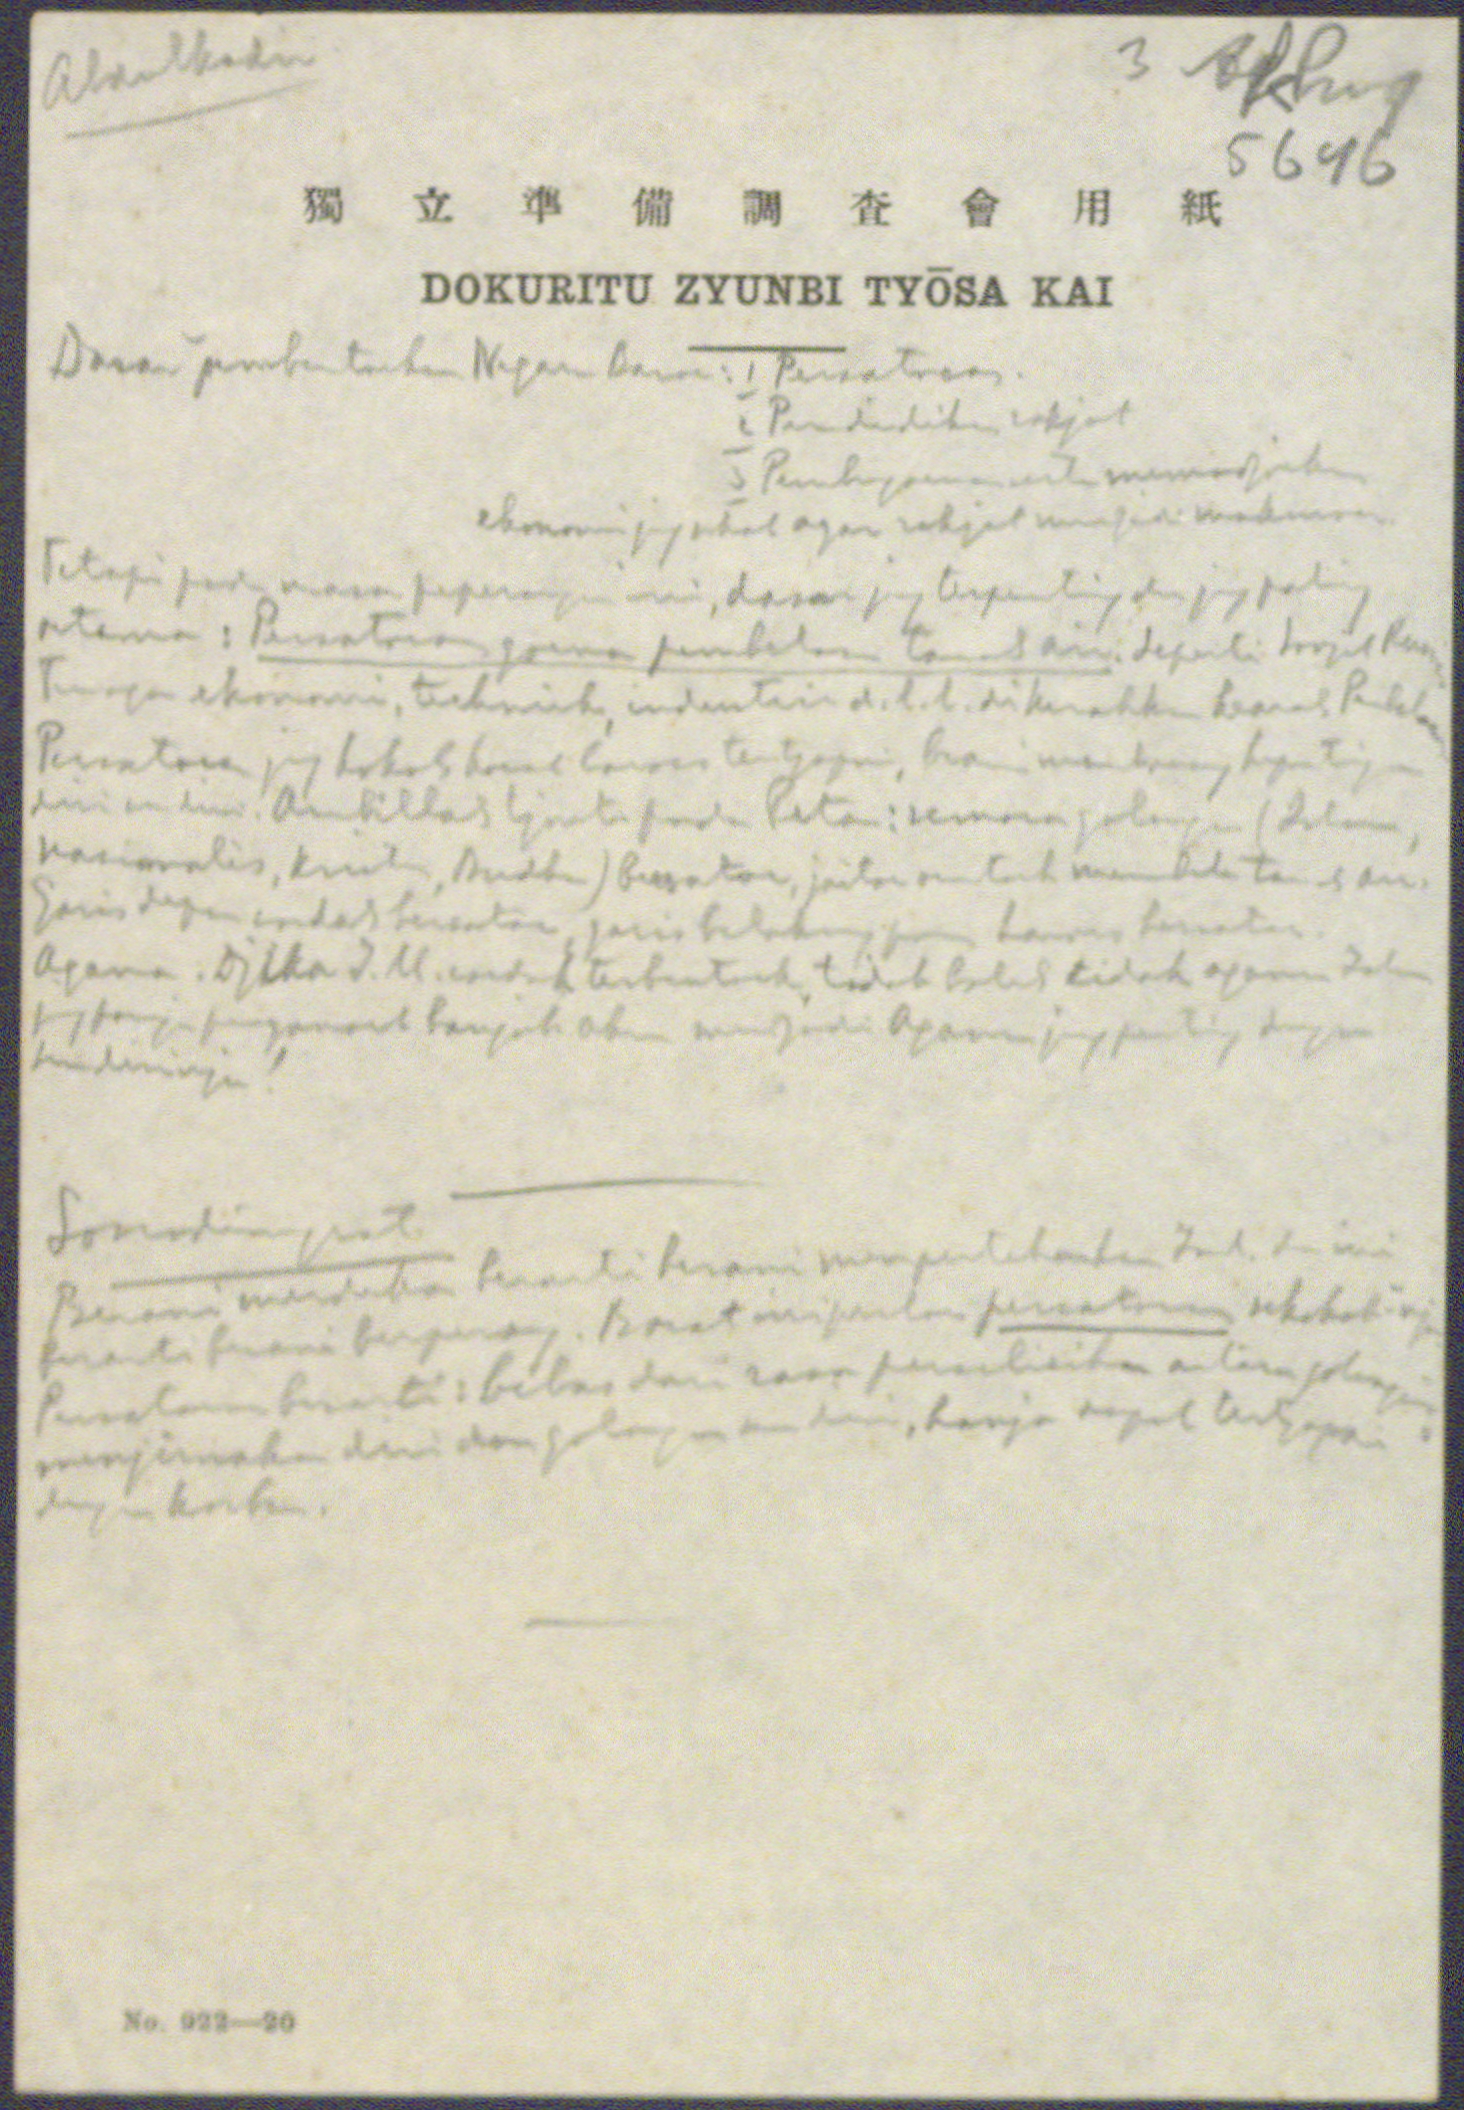 Abdulkadir
3
5646
獨立準備調査會用紙
DOKURITU ZYUNBI TYŌSA KAI
Dasar² pembentoekan Negara baroe: 1 Persatoean.
2 Pendidikan rakjat
3 Pembangoenan serta memadjoekan
ekonomi jg sehat agar rakjat mendjadi makmoer.
Tetapi pada masa peperangan ini, dasar jg terpenting dan jg paling
oetama: Persatoean goena pembelaan tanah air. Seperti Sovjet Roesia
Tenaga ekonomi, techniek, industrie d.l.l. dikerahkan kearah Pembelaan
Persatoean jg kokoh haroes tertjapai, berani memboeang kepentingan
diri sendiri. Ambillah tjonto pada Peta: semoea golongan (Islam,
nasionalis, Kristen, Buddha) bersatoe, jaitoe oentoek membela tanah air.
Garis depan soedah bersatoe, garis belakang poen haroes bersatoe.
Agama. Djika I.M. soedah terbentoek, tidak boleh tidak agama Islam
jg poenja pengaroeh banjak akan mendjadi Agama jg penting dengan
sendirinja!
Sosrodiningrat
Berani merdeka berarti berani mempertahankan Ind. dan ini
berarti berani berperang. Boeat ini perloe persatoean sekokoh²nja
Persatoean berarti: bebas dari rasa perselisihan antara golongan
menjirnakan diri dan golongan sendiri, hanja dapat tertjapai
dengan korban.
No. 922—20